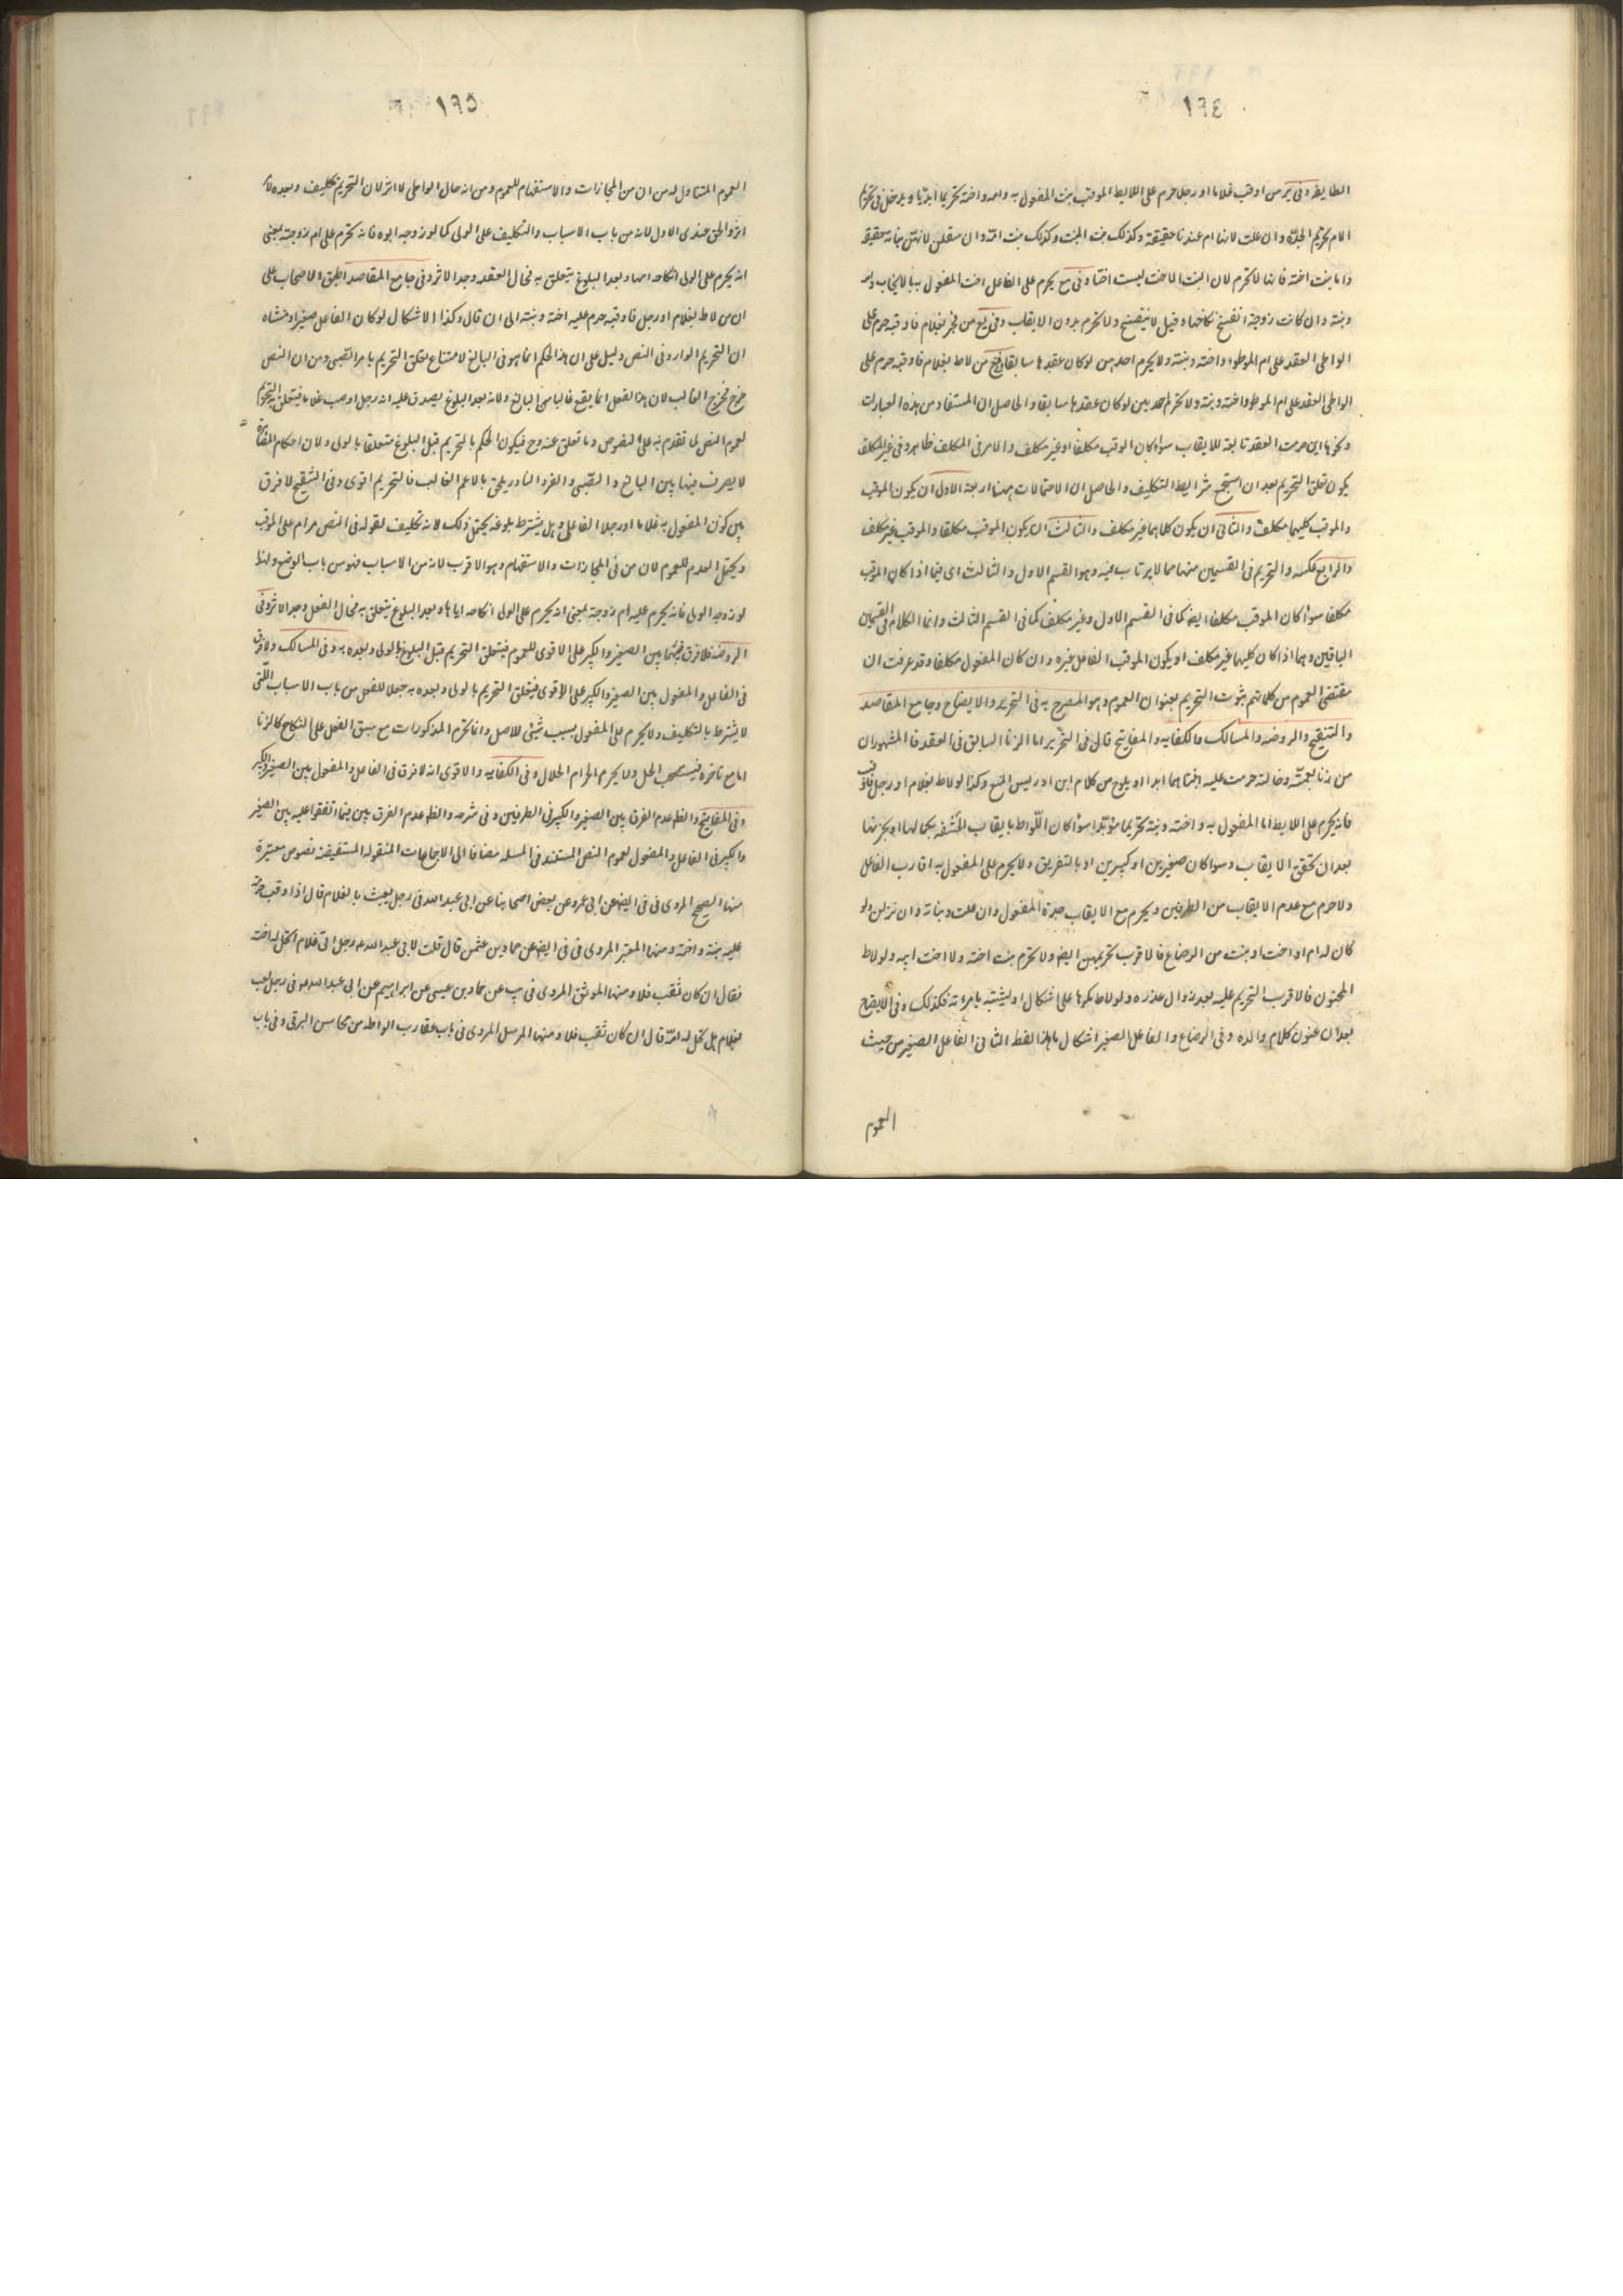 ١٩٤
الطايفه وفى ئر من اوقب غلاما او رجلا حرم على اللايط الموقب بنت المفعول به وامه واخته تحريما ابديا ويدخل فى تحريم
الام تحريم الجدة وان علت لانها ام عندنا حقيقة وكذلك بنت البنت وكذلك بنت ابنه وان سفلن لانهن بناته حقيقة
واما بنت اخته فانها لا تحرم لان البنت الاخت ليست اختا وفى مع يحرم على الفاعل اخت المفعول به بالايقاب وامه
وبنته وان كانت زوجة انفسخ نكاحها وقيل لا ينفسخ ولا تحرم بدون الايقاب وفى يع من فجر بغلام فاوقبه حرم على
الواطى العقد على ام الموطوء واخته وبنته ولا يحرم احدهن لو كان عقدها سابقا من لاط بغلام فاوقبه حرم على
الواطى العقد على ام الموطو واخته وبنته ولا تحرم لو كان عقدها سابقا والحاصل ان المستفاد من هذه العبارات
ونحوها ان حرمت العقد تابعة للايقاب سواء كان الموقب مكلفا او غير مكلف والامر فى المكلف ظاهر وفى غير المكلف
يكون تعلق التحريم بعد ان استجمع شرايط التكليف والحاصل ان الاحتمالات هنا اربعة الاول ان يكون الموقب
والموقب كليهما مكلف والثانى ان يكون كلاهما غير مكلف والثالث ان يكون الموقب مكلفا والموقب غير مكلف
والرابع عكسه والتحريم فى القسمين منها مما لا يرتاب فيه وهو القسم الاول والثالث اى فيما اذا كان الموقب
مكلفا سواء كان الموقب مكلفا ايضا كما فى القسم الاول وغير مكلف كما فى القسم الثالث وانما الكلام فى القسمين
الباقيين وهما اذا كان كليهما غير مكلف او يكون الموقب الفاعل غيره وان كان المفعول مكلفا وقد عرفت ان
مقتضى العموم من كلماتهم ثبوت التحريم بعنوان العموم وهو المصرح به فى التحرير والايضاح وجامع المقاصد
والتنقيح والروضه والمسالك والكفايه والمفاتيح قال فى التحرير اما الزنا السابق فى العقد فالمشهور ان
من زنا بعمته وخالته حرمت عليه ابنتاهما ابدا ويلوح من كلام ابن ادريس المنع وكذا لو لاط بغلام او رجل فاوقب
فانه يحرم على اللايط ام المفعول به واخته وبنته تحريما مؤبدا سواء كان اللواط بايقاب الحشفه بكمالها او بجزء منها
بعد ان تحقق الايقاب وسوا كان صغيرين او كبيرين او بالتفريق ولا يحرم على المفعول به اقارب الفاعل
ولا حرم مع عدم الايقاب من الطرفين ويحرم مع الايقاب جدة المفعول وان علت وبناته وان نزلن ولو
كان له ام او اخت او بنت من الرضاع فالاقرب تحريمهن ايضا ولا تحرم بنت اخته ولا اخت ابيه ولو لاط
المجنون فالاقرب التحريم عليه بعد زوال عذره ولو لاط مكرها على اشكال او يشتبه بامرءته فكذلك وفى الايضاح
بعد ان عنون كلام والده وفى الرضاع والفاعل الصغير اشكال ما هذا لفظ الثانى الفاعل الصغير من حيث
العموم
١٩٥
العموم المتناول له من ان من المجازات والاستفهام للعموم ومن انه حال الواطى لا اثر لان التحريم تكليف وبعده لا
اثر والحق عندى الاول لانه من باب الاسباب والتكليف على الولى كما لو زوجه ابوه فانه تحرم على ام زوجته بمعنى
انه يحرم على الولى انكاحه امها وبعد البلوغ يتعلق به فحال العقد وجد الاثر وفى جامع المقاصد اطبق الاصحاب على
ان من لاط بغلام او رجل فاوقبه حرم عليه اخته وبنته الى ان قال وكذا الاشكال لو كان الفاعل صغيرا ومنشاه
ان التحريم الوارد فى النص دليل على ان هذا الحكم انما هو فى البالغ لامتناع تعلق التحريم بامر الصبى ومن ان النص
خرج مخرج الغالب لان هذا الفعل انما يقع غالبا من البالغ ولانه بعد البلوغ يصدق عليه انه رجل اوقب غلاما فيتعلق به التحريم
لعموم النص لما تقدم به على النصوص وما تعلق عنه وح فيكون الحكم بالتحريم قبل البلوغ متعلقا بالولى ولان احكام المصاهرة
لا يفرق فيها بين البالغ والصبى والفرد النادر يلحق بالاعم الغالب فالتحريم اقوى وفى التنقيح لا فرق
بين كون المفعول به غلاما او رجلا الفاعل وهل يشترط بلوغه يحتمل ذلك لانه تكليف لقوله فى النص حرام على الموقب
ويحتمل العدم للعموم لان من فى المجازات والاستفهام وهو الاقرب لانه من الاسباب فهو من باب الوضع ولهذا
لو زوجه الولى فانه يحرم عليه ام زوجته بمعنى انه يحرم على الولى انكاحه اياها وبعد البلوغ يتعلق به فحال الفعل وجد الاثر وفى
الروضه فلا فرق فيهما بين الصغير والكبير على الاقوى للعموم فيتعلق التحريم قبل البلوغ بالولى وبعده به وفى المسالك ولا فرق
فى الفاعل والمفعول بين الصغير والكبير على الاقوى فيتعلق التحريم بالولى وبعده به جعلا للفعل من باب الاسباب التى
لا يشترط بالتكليف ولا يحرم على المفعول بسبب شيئى للاصل وانما تحرم المذكورات مع سبق الفعل على النكاح كالزنا
اما مع تاخره فيستصحب الحل ولا يحرم الحرام الحلال وفى الكفايه والاقوى انه لا فرق فى الفاعل والمفعول بين الصغير والكبير
وفى المفاتيح والظاهر عدم الفرق بين الصغير والكبير فى الطرفين وفى شرحه والظ عدم الفرق بين فيما اتفقوا عليه بين الصغير
والكبير فى الفاعل والمفعول لعموم النص المستند فى المسله مضافا الى الاجماعات المنقوله المستفيضه نصوص معتبرة
منها الصحيح المروى فى فى ايضا عن ابى عمير وعن بعض اصحابنا عن ابى عبدالله فى رجل يعبث بالغلام قال اذا اوقب حرمت
عليه بنته واخته ومنها المعتبر المروى فى فى ايضا عن حماد بن عثمن قال قلت لابى عبدالله ع رجل اتى غلاما اتحل له اخته
فقال ان كان ثقب فلا ومنها الموثق المروى فى يب عن حماد بن عيسى عن ابراهيم عن ابى عبدالله ع فى رجل لعب
بغلام هل تحل له امه قال ان كان ثقب فلا ومنها المرسل المروى فى باب عقاب اللواطه من محاسن البرقى وفى باب